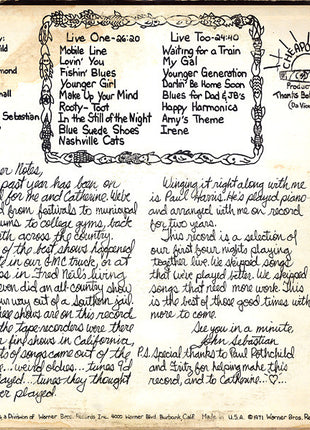 Live One-26:20
Mobile Line
Lovin' You
Fishin' Blues
Younger Girl
Make Up Your Mind
Rooty-Toot
In the Still of the Night
Blue Suede Shoes
Nashville Cats
Live Too-24:40
Waiting for a Train
My Gal
Younger Generation
Darlin' Be Home Soon
Blues for Dad & JB's
Happy Harmonica
Amy's Theme
Irene
CHEAPO
Produc
Thanks
(Da Vio
Sebastian
er Notes,
past year has been on
d for me and Catherine. We've
d from festivals to municipal
ums to college gyms, back
eth across the country.
of the best shows happened
in our GMC truck, or at
s in Fred Neil's living
even did an all-country show
ur way out of a southern jail.
ese shows are on this record
the tape recorders were there
r final shows in California,
ts of songs came out of the
e...weird oldies...tunes I'd
layed...tunes they thought
r played.
Winging it right along with me
is Paul Harris. He's played piano
and arranged with me on record
for two years.
This record is a selection of
our first four nights playing
together live. We skipped songs
that we're played better. We skipped
songs that need more work. This
is the best of those good times with
more to come.
See you in a minute,
John Sebastian
P.S. Special thanks to Paul Rothchild
and Fritz for helping make this
record, and to Catherine...♡...
& a Division of Warner Bros. Records Inc. 4000 Warner Blvd. Burbank, Calif. Made in U.S.A. ©1971 Warner Bros. Re